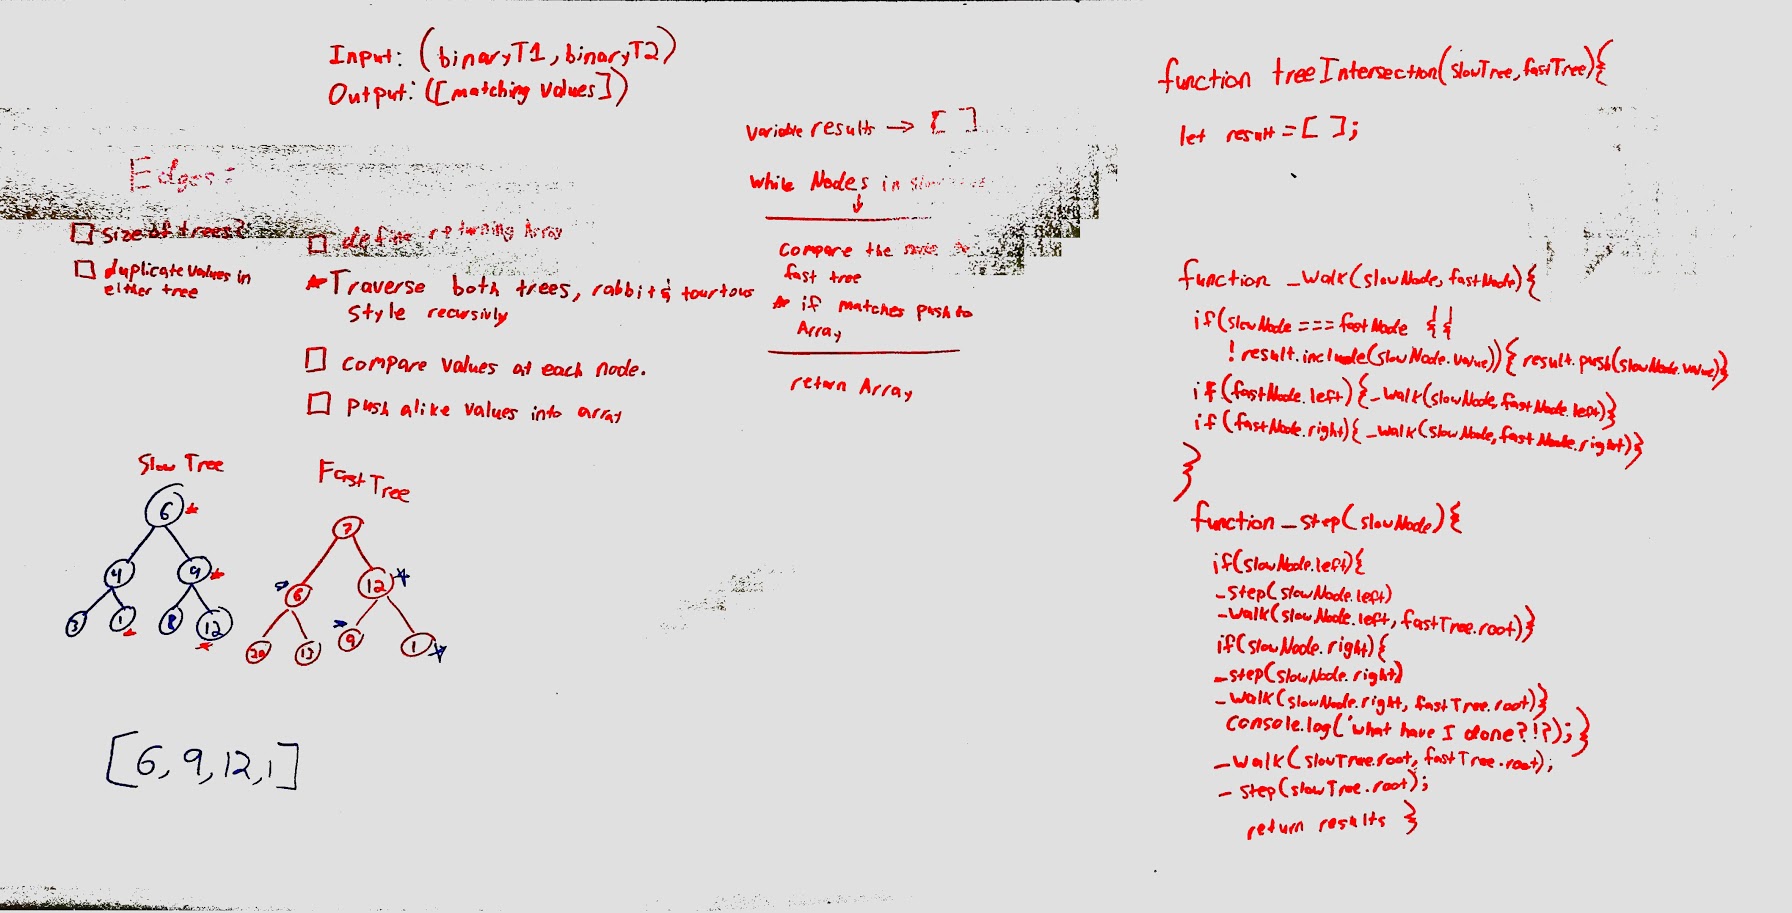 Input: (binaryT1, binaryT2)
Output: ([matching values])
Edges:
size of trees?
duplicate values in
either tree
define returning Array
Traverse both trees, rabbit & tourtous
style recursivly
compare values at each node.
push alike values into array
Slow Tree
6
4 9
3 1 8 12
Fast Tree
7
6 12
20 13 9 1
[6, 9, 12, 1]
variable results → [ ]
while Nodes in
Compare the
fast tree
if matches push to
Array
return Array
function treeIntersection(slowTree, fastTree){
let result = [ ];
function _walk(slowNode, fastNode){
if(slowNode === fastNode &&
!result.include(slowNode.value)){ result.push(slowNode.value)}
if(fastNode.left){_walk(slowNode, fastNode.left)}
if(fastNode.right){_walk(slowNode, fastNode.right)}
}
function _step(slowNode){
if(slowNode.left){
_step(slowNode.left)
_walk(slowNode.left, fastTree.root)}
if(slowNode.right){
_step(slowNode.right)
_walk(slowNode.right, fastTree.root)}
console.log('what have I done?!?);}
_walk(slowTree.root, fastTree.root);
_step(slowTree.root);
return results }